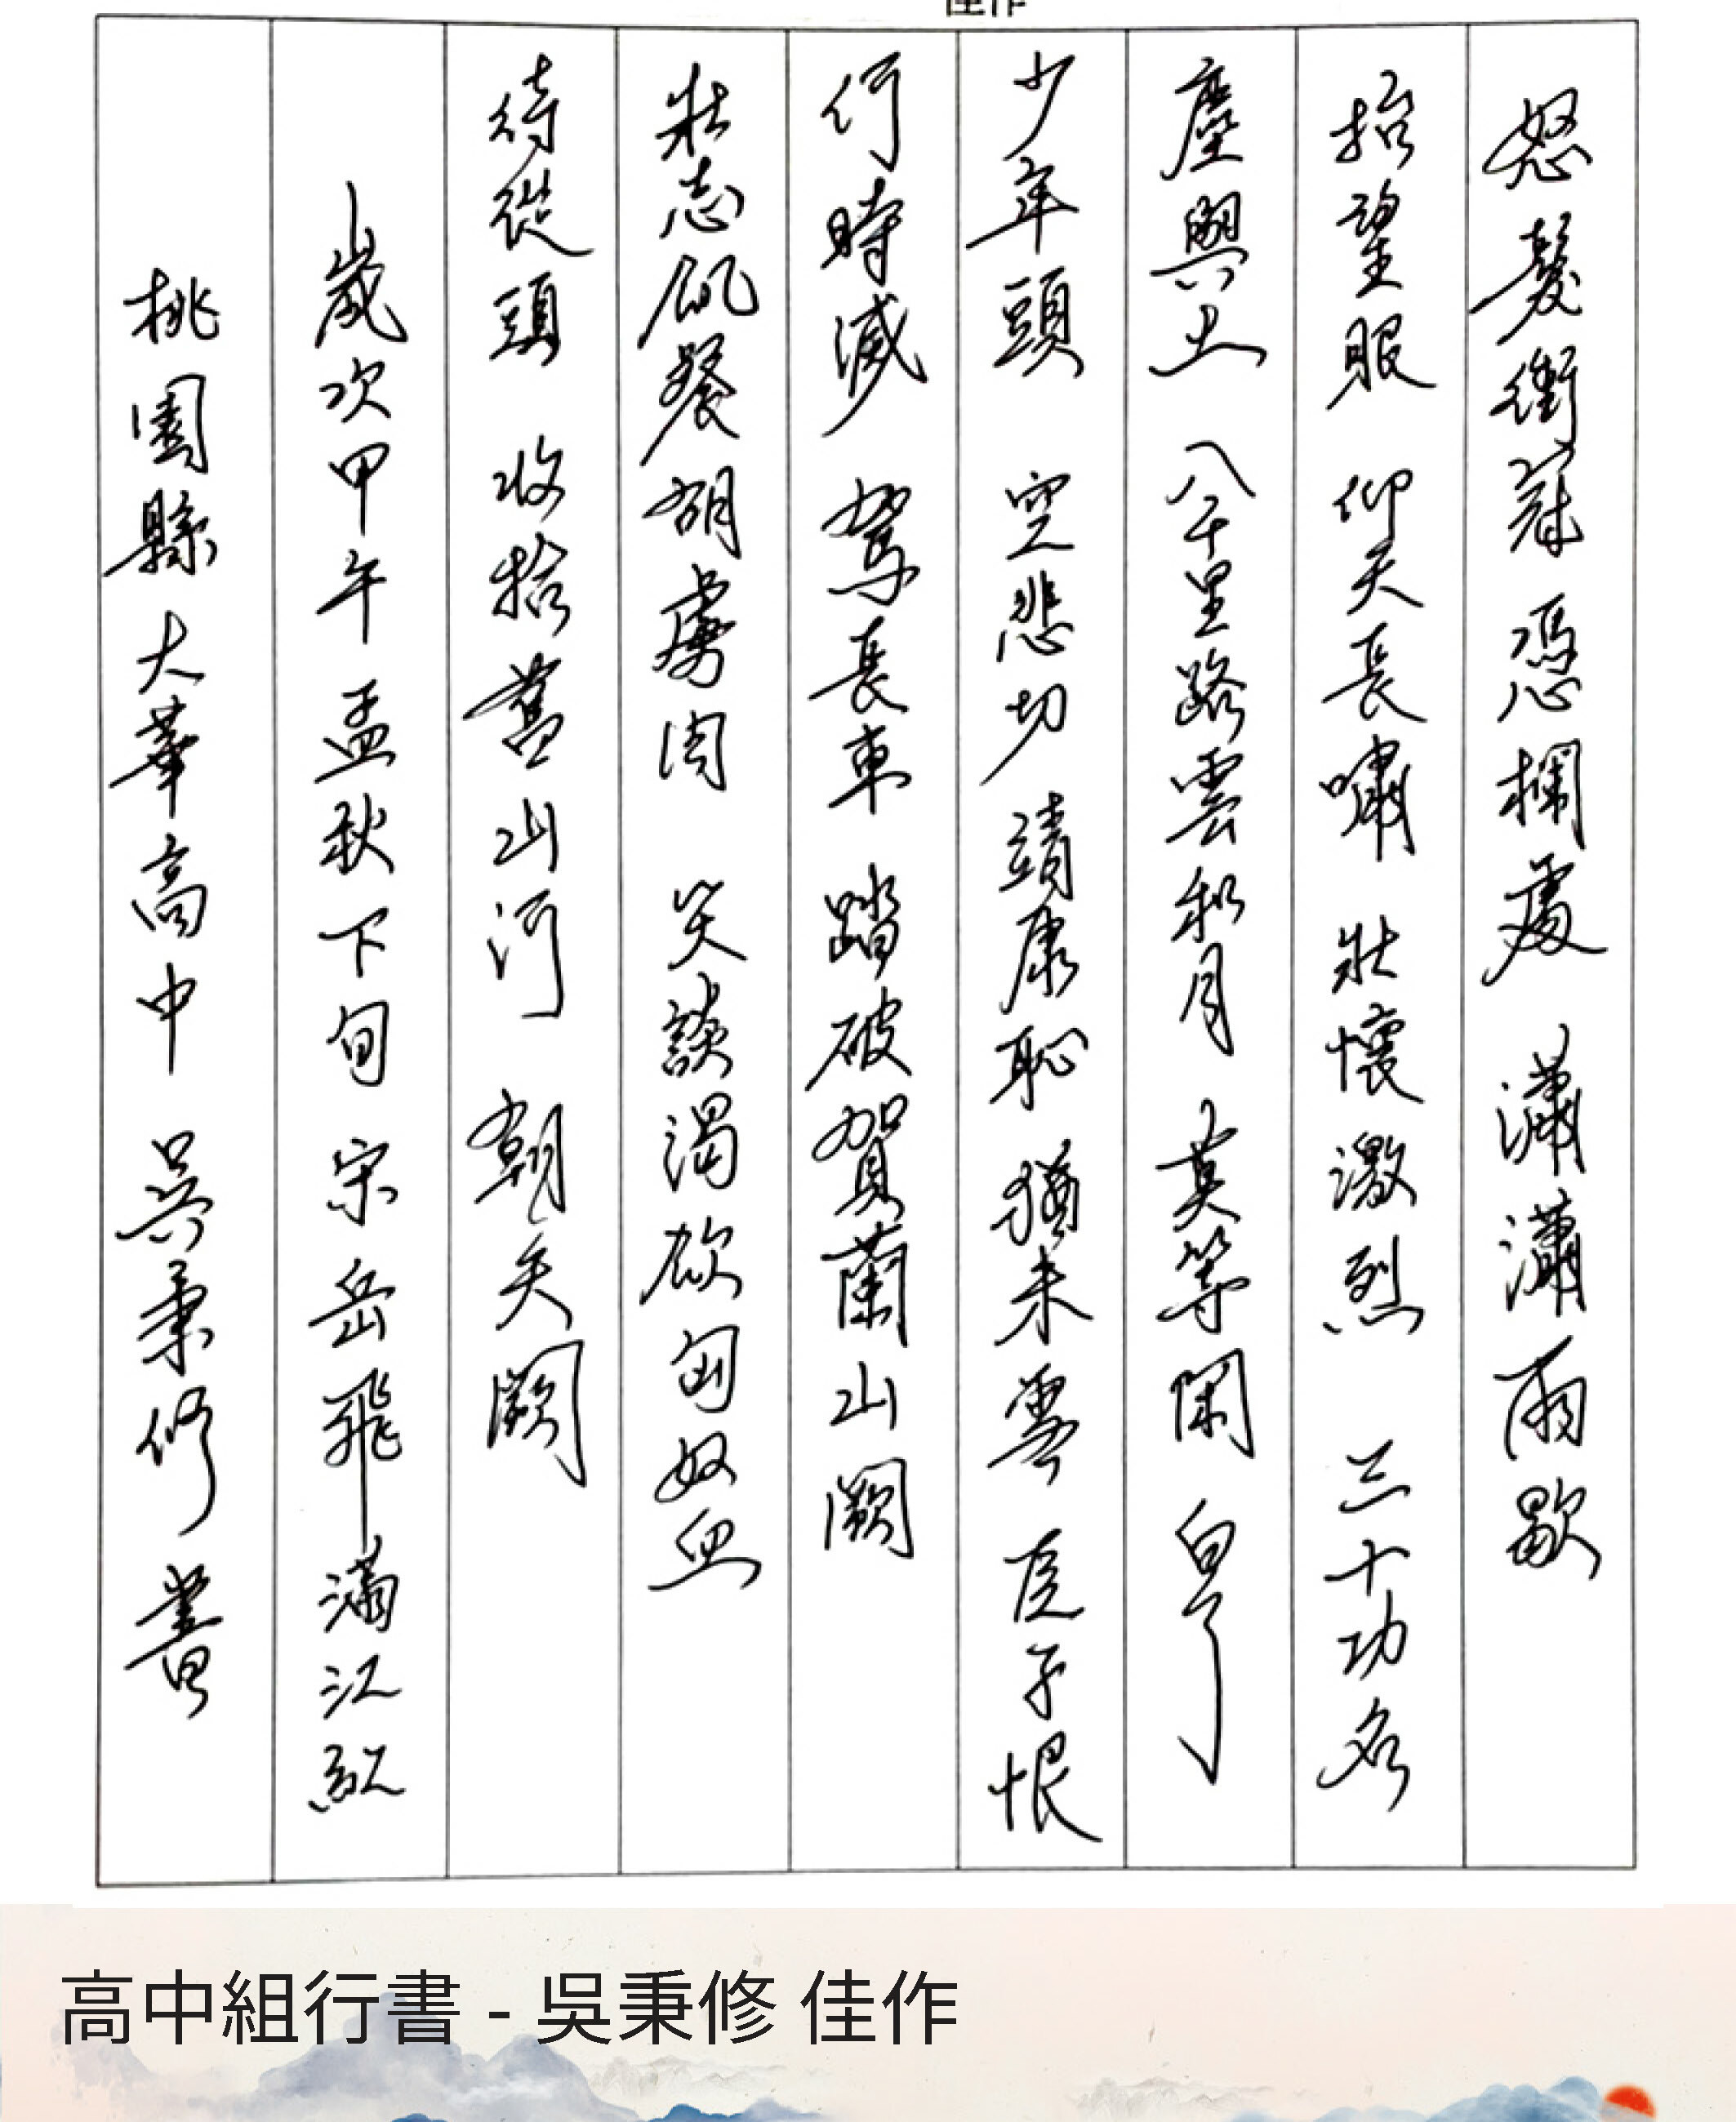 佳作
怒髮衝冠 憑欄處 瀟瀟雨歇
抬望眼 仰天長嘯 壯懷激烈 三十功名
塵與土 八千里路雲和月 莫等閑 白了
少年頭 空悲切 靖康恥 猶未雪 臣子恨
何時滅 駕長車 踏破賀蘭山闕
壯志飢餐胡虜肉 笑談渴飲匈奴血
待從頭 收拾舊山河 朝天闕
歲次甲午孟秋下旬 宋岳飛滿江紅
桃園縣大華高中 吳秉修 書
高中組行書 - 吳秉修 佳作